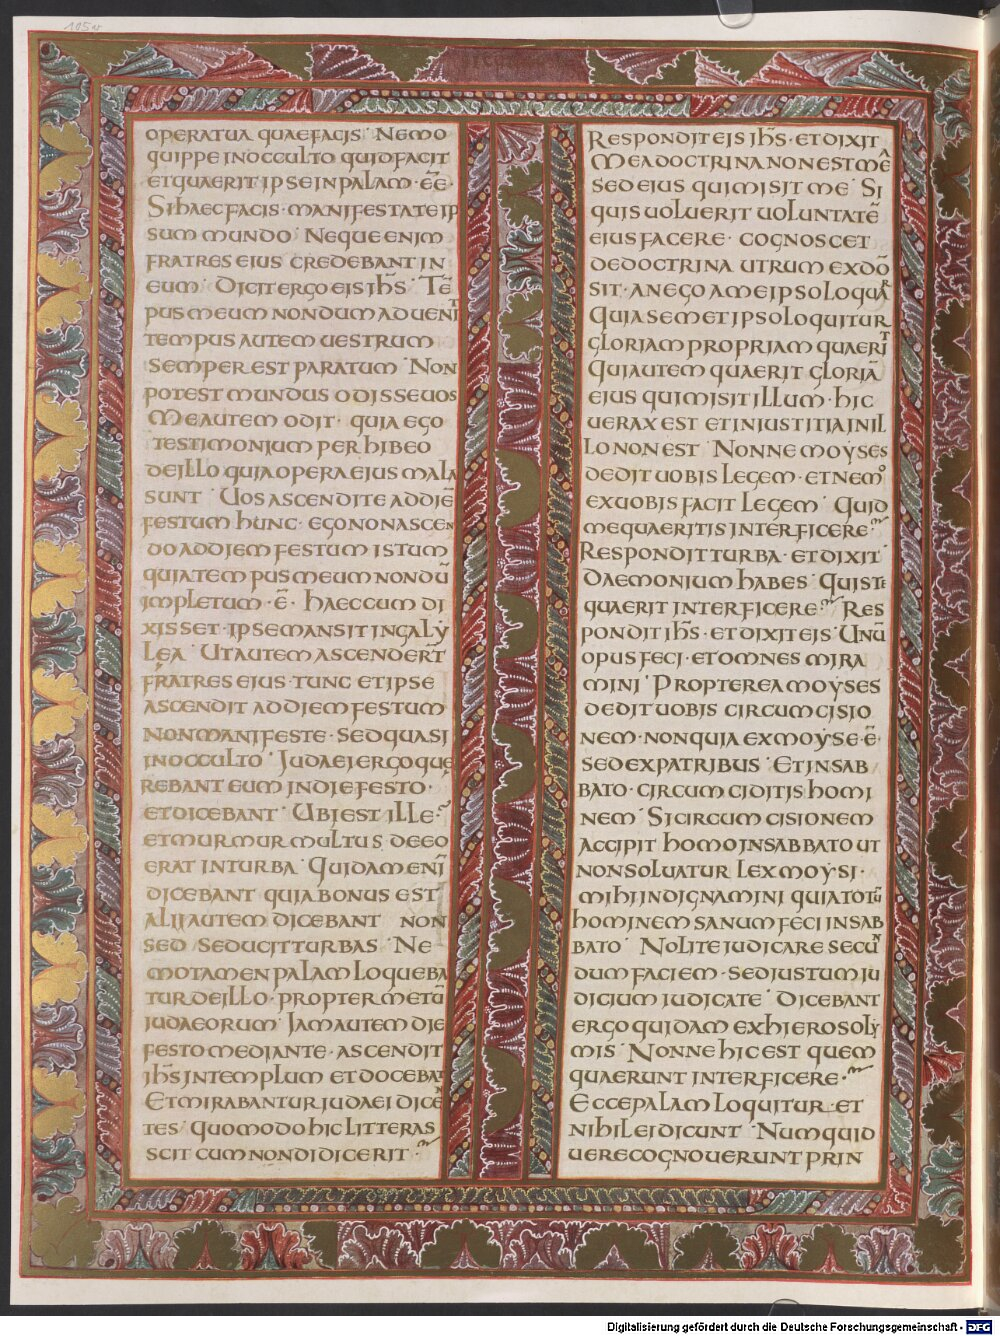 105v
OPERATUA QUAEFACIS· NEMO
QUIPPE INOCCULTO QUIDFACIT
ETQUAERIT IPSEINPALAM· EE̅·
SIHAECFACIS· MANIFESTATEIP
SUM MUNDO· NEQUEENIM
FRATRES EIUS CREDEBANT IN
EUM· DICITERGOEIS IHS̅· TE̅
PUSMEUMNONDUMADUENIT
TEMPUS AUTEM UESTRUM
SEMPER EST PARATUM· NON
POTEST MUNDUS ODISSEUOS
MEAUTEM ODIT· QUIA EGO
TESTIMONIUM PERHIBEO
DEILLO QUIAOPERAEIUS MALA
SUNT· UOS ASCENDITE ADDIE̅
FESTUM HUNC· EGONONASCEN
DO ADDIEM FESTUM ISTUM
QUIATEMPUSMEUMNONDU̅
IMPLETUM· E̅· HAECCUM DI
XISSET· IPSEMANSIT INGALY
LEA· UTAUTEM ASCENDER̅T
FRATRES EIUS· TUNC ETIPSE
ASCENDIT ADDIEMFESTUM
NONMANIFESTE· SEDQUASI
INOCCULTO· IUDAEIERGOQUE
REBANT EUM INDIEFESTO·
ETDICEBANT· UBIEST ILLE·
ETMURMUR MULTUS DEEO
ERAT INTURBA· QUIDAMENI̅
DICEBANT QUIABONUS EST
ALIIAUTEM DICEBANT NON
SED SEDUCITTURBAS· NE
MOTAMENPALAMLOQUEBA
TURDEILLO· PROPTERMETU̅
IUDAEORUM· IAMAUTEM DIE
FESTOMEDIANTE· ASCENDIT
IHS̅ INTEMPLUM ETDOCEBAT
ETMIRABANTURIUDAEI DICE̅
TES· QUOMODOHIC LITTERAS
SCIT CUM NONDIDICERIT·
RESPONDITEIS IHS̅· ETDIXIT
MEADOCTRINANONESTMEA
SEDEIUS QUIMISIT ME· SI
QUISUOLUERIT UOLUNTATE̅
EIUSFACERE· COGNOSCET
DEDOCTRINA UTRUM EXDO̅
SIT· ANEGO AMEIPSOLOQUAR
QUIASEMETIPSOLOQUITUR
GLORIAMPROPRIAMQUAERIT
QUIAUTEM QUAERIT GLORIA̅
EIUS QUIMISIT ILLUM· HIC
UERAX EST ETINIUSTITIAINIL
LONONEST· NONNE MOYSES
DEDITUOBIS LEGEM· ETNEMO
EXUOBIS FACIT LEGEM· QUID
MEQUAERITIS INTERFICERE·
RESPONDIT TURBA· ETDIXIT·
DAEMONIUM HABES· QUISTE
QUAERIT INTERFICERE· RES
PONDIT IHS̅· ETDIXIT EIS· UNU̅
OPUS FECI· ETOMNES MIRA
MINI· PROPTEREAMOYSES
DEDITUOBIS CIRCUMCISIO
NEM· NONQUIA EXMOYSE· E̅·
SEDEXPATRIBUS· ETINSAB
BATO· CIRCUMCIDITIS HOMI
NEM· SICIRCUMCISIONEM
ACCIPIT HOMOINSABBATOUT
NONSOLUATUR LEXMOYSI·
MIHIINDIGNAMINI QUIATOTU̅
HOMINEM SANUM FECI INSAB
BATO· NOLITEIUDICARE SECUN
DUM FACIEM· SEDIUSTUM IU
DICIUM IUDICATE· DICEBANT
ERGO QUIDAM EXHIEROSOLY
MIS· NONNEHICEST QUEM
QUAERUNT INTERFICERE·
ECCEPALAM LOQUITUR· ET
NIHILEIDICUNT· NUMQUID
UERECOGNOUERUNTPRIN
Digitalisierung gefördert durch die Deutsche Forschungsgemeinschaft - DFG